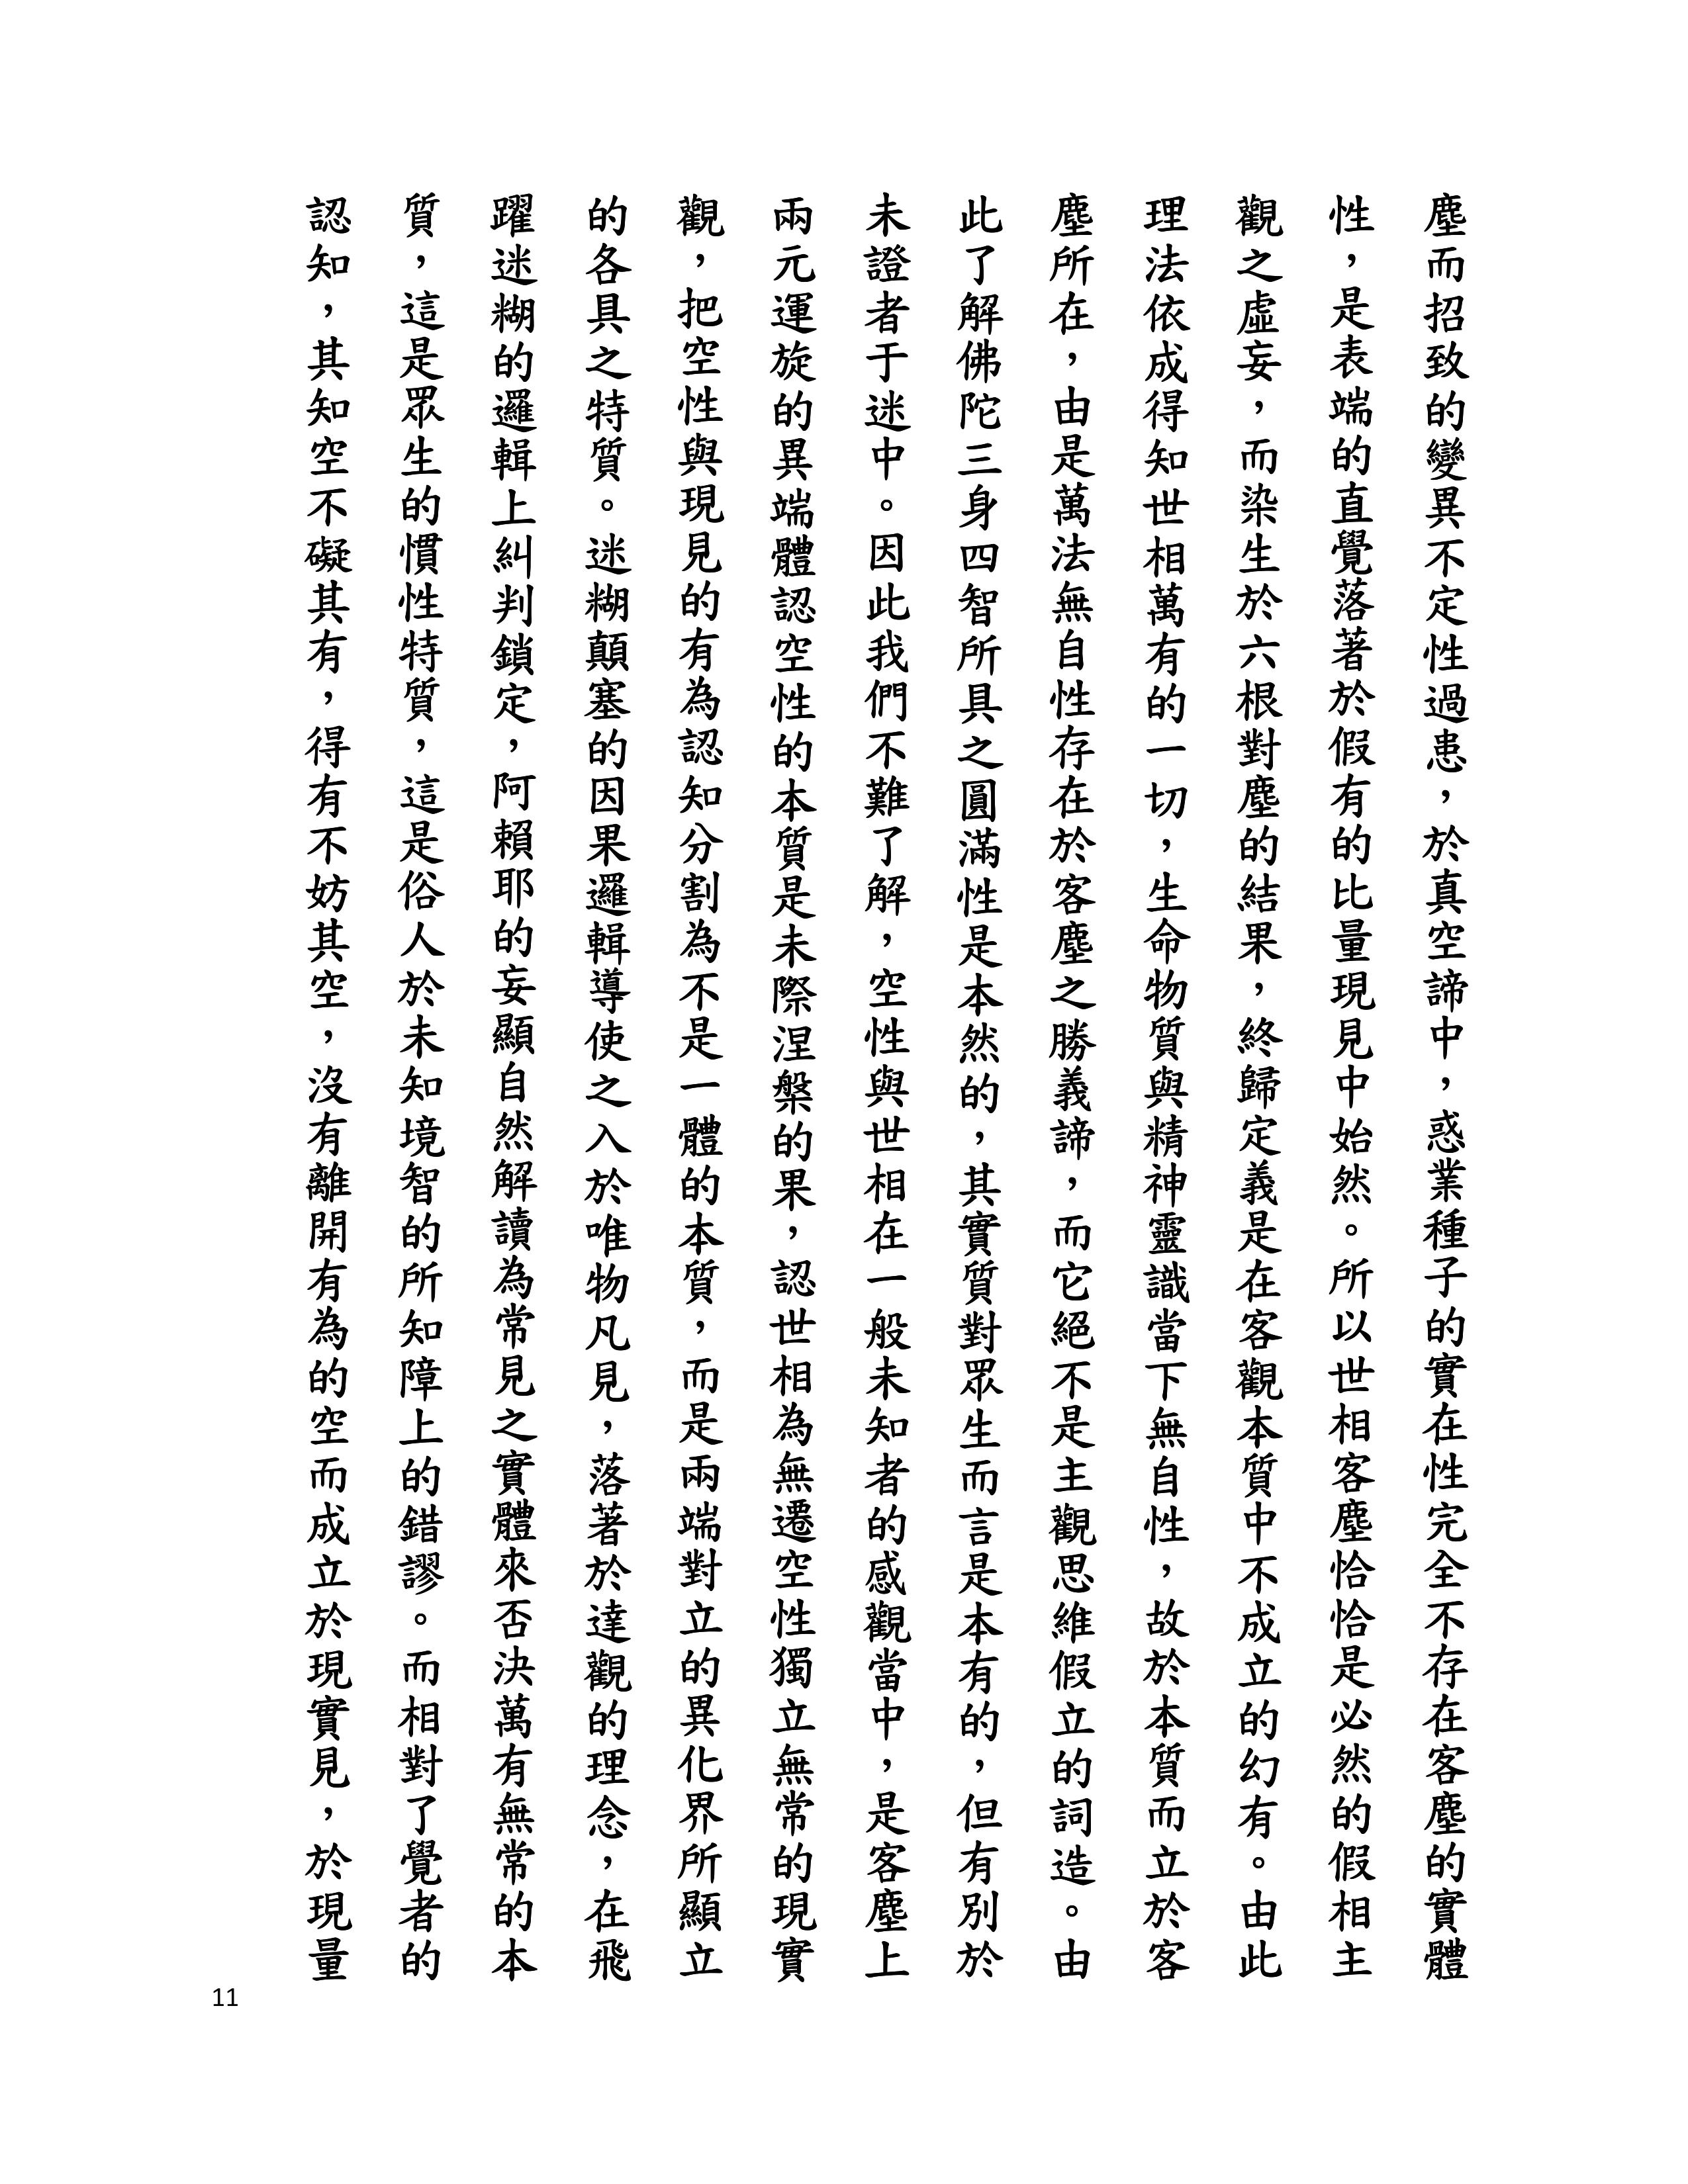 塵而招致的變異不定性過患，於真空諦中，惑業種子的實在性完全不存在客塵的實體
性，是表端的直覺落著於假有的比量現見中始然。所以世相客塵恰恰是必然的假相主
觀之虛妄，而染生於六根對塵的結果，終歸定義是在客觀本質中不成立的幻有。由此
理法依成得知世相萬有的一切，生命物質與精神靈識當下無自性，故於本質而立於客
塵所在，由是萬法無自性存在於客塵之勝義諦，而它絕不是主觀思維假立的詞造。由
此了解佛陀三身四智所具之圓滿性是本然的，其實質對眾生而言是本有的，但有別於
未證者于迷中。因此我們不難了解，空性與世相在一般未知者的感觀當中，是客塵上
兩元運旋的異端體認空性的本質是未際涅槃的果，認世相為無遷空性獨立無常的現實
觀，把空性與現見的有為認知分割為不是一體的本質，而是兩端對立的異化界所顯立
的各具之特質。迷糊顛塞的因果邏輯導使之入於唯物凡見，落著於達觀的理念，在飛
躍迷糊的邏輯上糾判鎖定，阿賴耶的妄顯自然解讀為常見之實體來否決萬有無常的本
質，這是眾生的慣性特質，這是俗人於未知境智的所知障上的錯謬。而相對了覺者的
認知，其知空不礙其有，得有不妨其空，沒有離開有為的空而成立於現實見，於現量
11